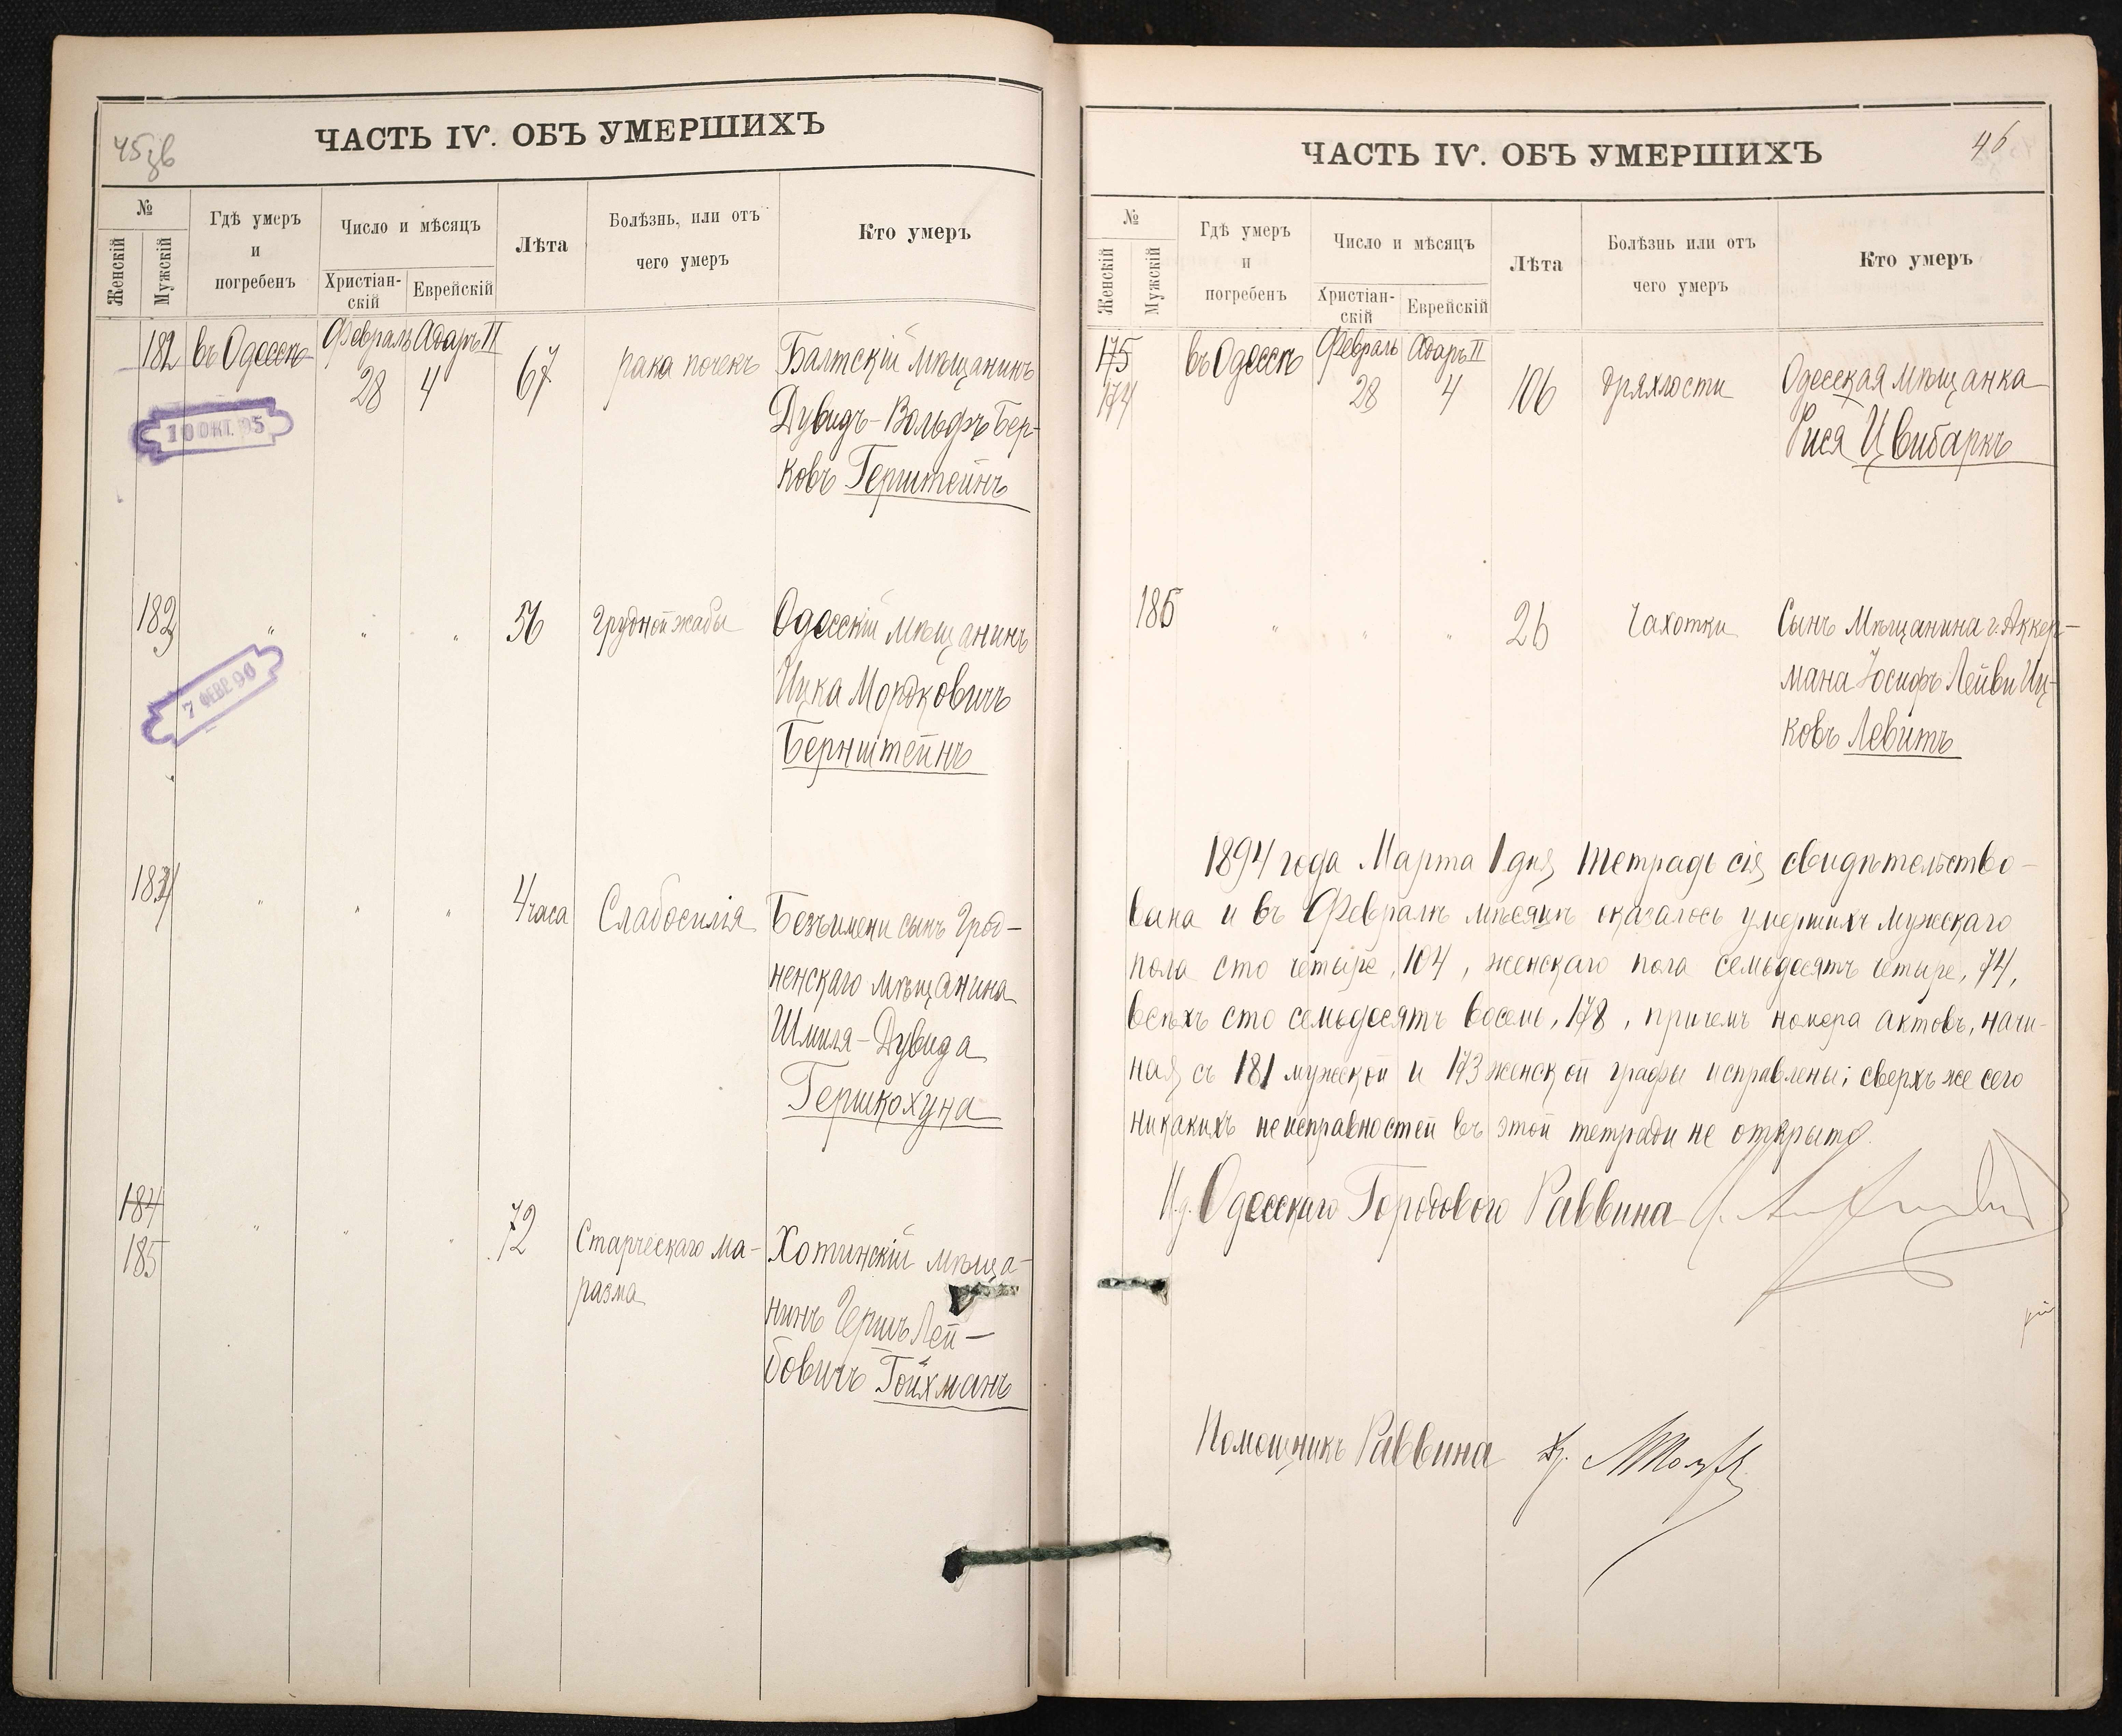 45 зв
ЧАСТЬ IV. ОБЪ УМЕРШИХЪ
№
Женскій
Мужскій
Гдѣ умеръ
и
погребенъ
Число и мѣсяцъ
Христіан-
скій
Еврейскій
Лѣта
Болѣзнь, или отъ
чего умеръ
Кто умеръ
182 въ Одессѣ Февраль Адаръ II 67 рака почекъ Балтскій мѣщанинъ
28 4 Дувидъ-Вольфъ Бер-
ковъ Герштейнъ
10 ОКТ. 95
183 " " " 56 грудной жабы Одесскій мѣщанинъ
Ицка Мордковичъ
Бернштейнъ
7 ФЕВР. 90
184 " " " 4 часа Слабосилія Безъимени сынъ Грод-
ненскаго мѣщанина
Шмиля-Дувида
Гершкохуна
184
185 " " " 72 Старческаго ма- Хотинскій мѣща-
разма нинъ Гершъ Лей-
бовичъ Гойхманъ
ЧАСТЬ IV. ОБЪ УМЕРШИХЪ
46
№
Женскій
Мужскій
Гдѣ умеръ
и
погребенъ
Число и мѣсяцъ
Христіан-
скій
Еврейскій
Лѣта
Болѣзнь или отъ
чего умеръ
Кто умеръ
175 въ Одессѣ Февраль Адаръ II
174 28 4 106 дряхлости Одесская мѣщанка
Рися Цвибаркъ
186 " " " 26 Чахотки Сынъ Мѣщанина г. Аккер-
мана Іосифъ Лейви Иц-
ковъ Левитъ
1894 года Марта 1 дня тетрадь сія свидѣтельство-
вана и въ Февралѣ мѣсяцѣ оказалось умершихъ мужскаго
пола сто четыре, 104, женскаго пола семьдесятъ четыре, 74,
всѣхъ сто семьдесятъ восемь, 178, причемъ номера актовъ, начи-
ная съ 181 мужской и 173 женской графы исправлены; сверхъ же сего
никакихъ неисправностей въ этой тетради не открыто.
И.д. Одесскаго Городового Раввина
Помощникъ Раввина